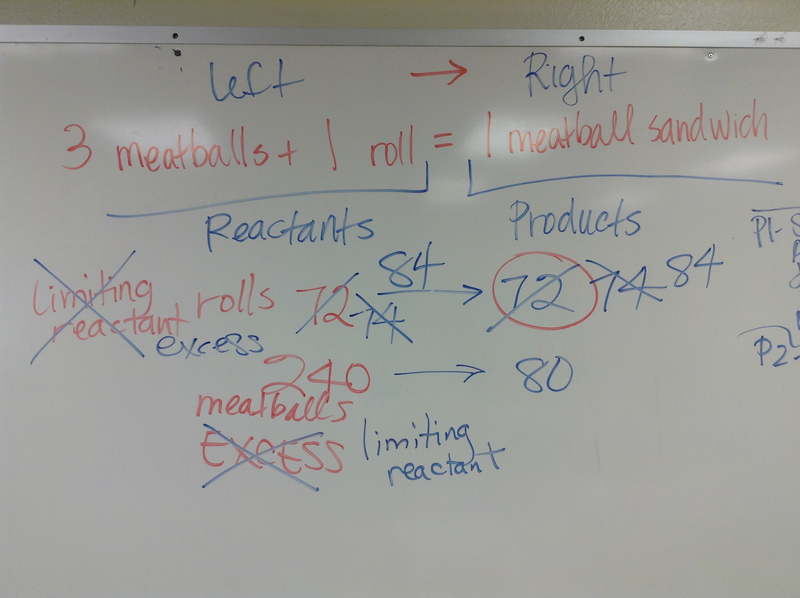 Left → Right
3 meatballs + 1 roll = 1 meatball sandwich
Reactants Products
limiting
reactant rolls 72 74 84 → 72 74 84
excess
240 → 80
meatballs
EXCESS limiting
reactant
P1-
P2